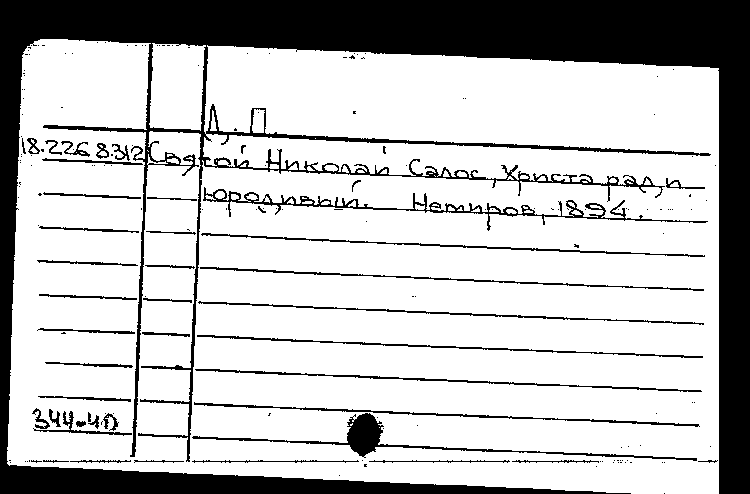 Д. П.
18.226.8.312 Святой Николай Салос, Христа рад, и.
юродивый. Немиров, 1894.
344-40